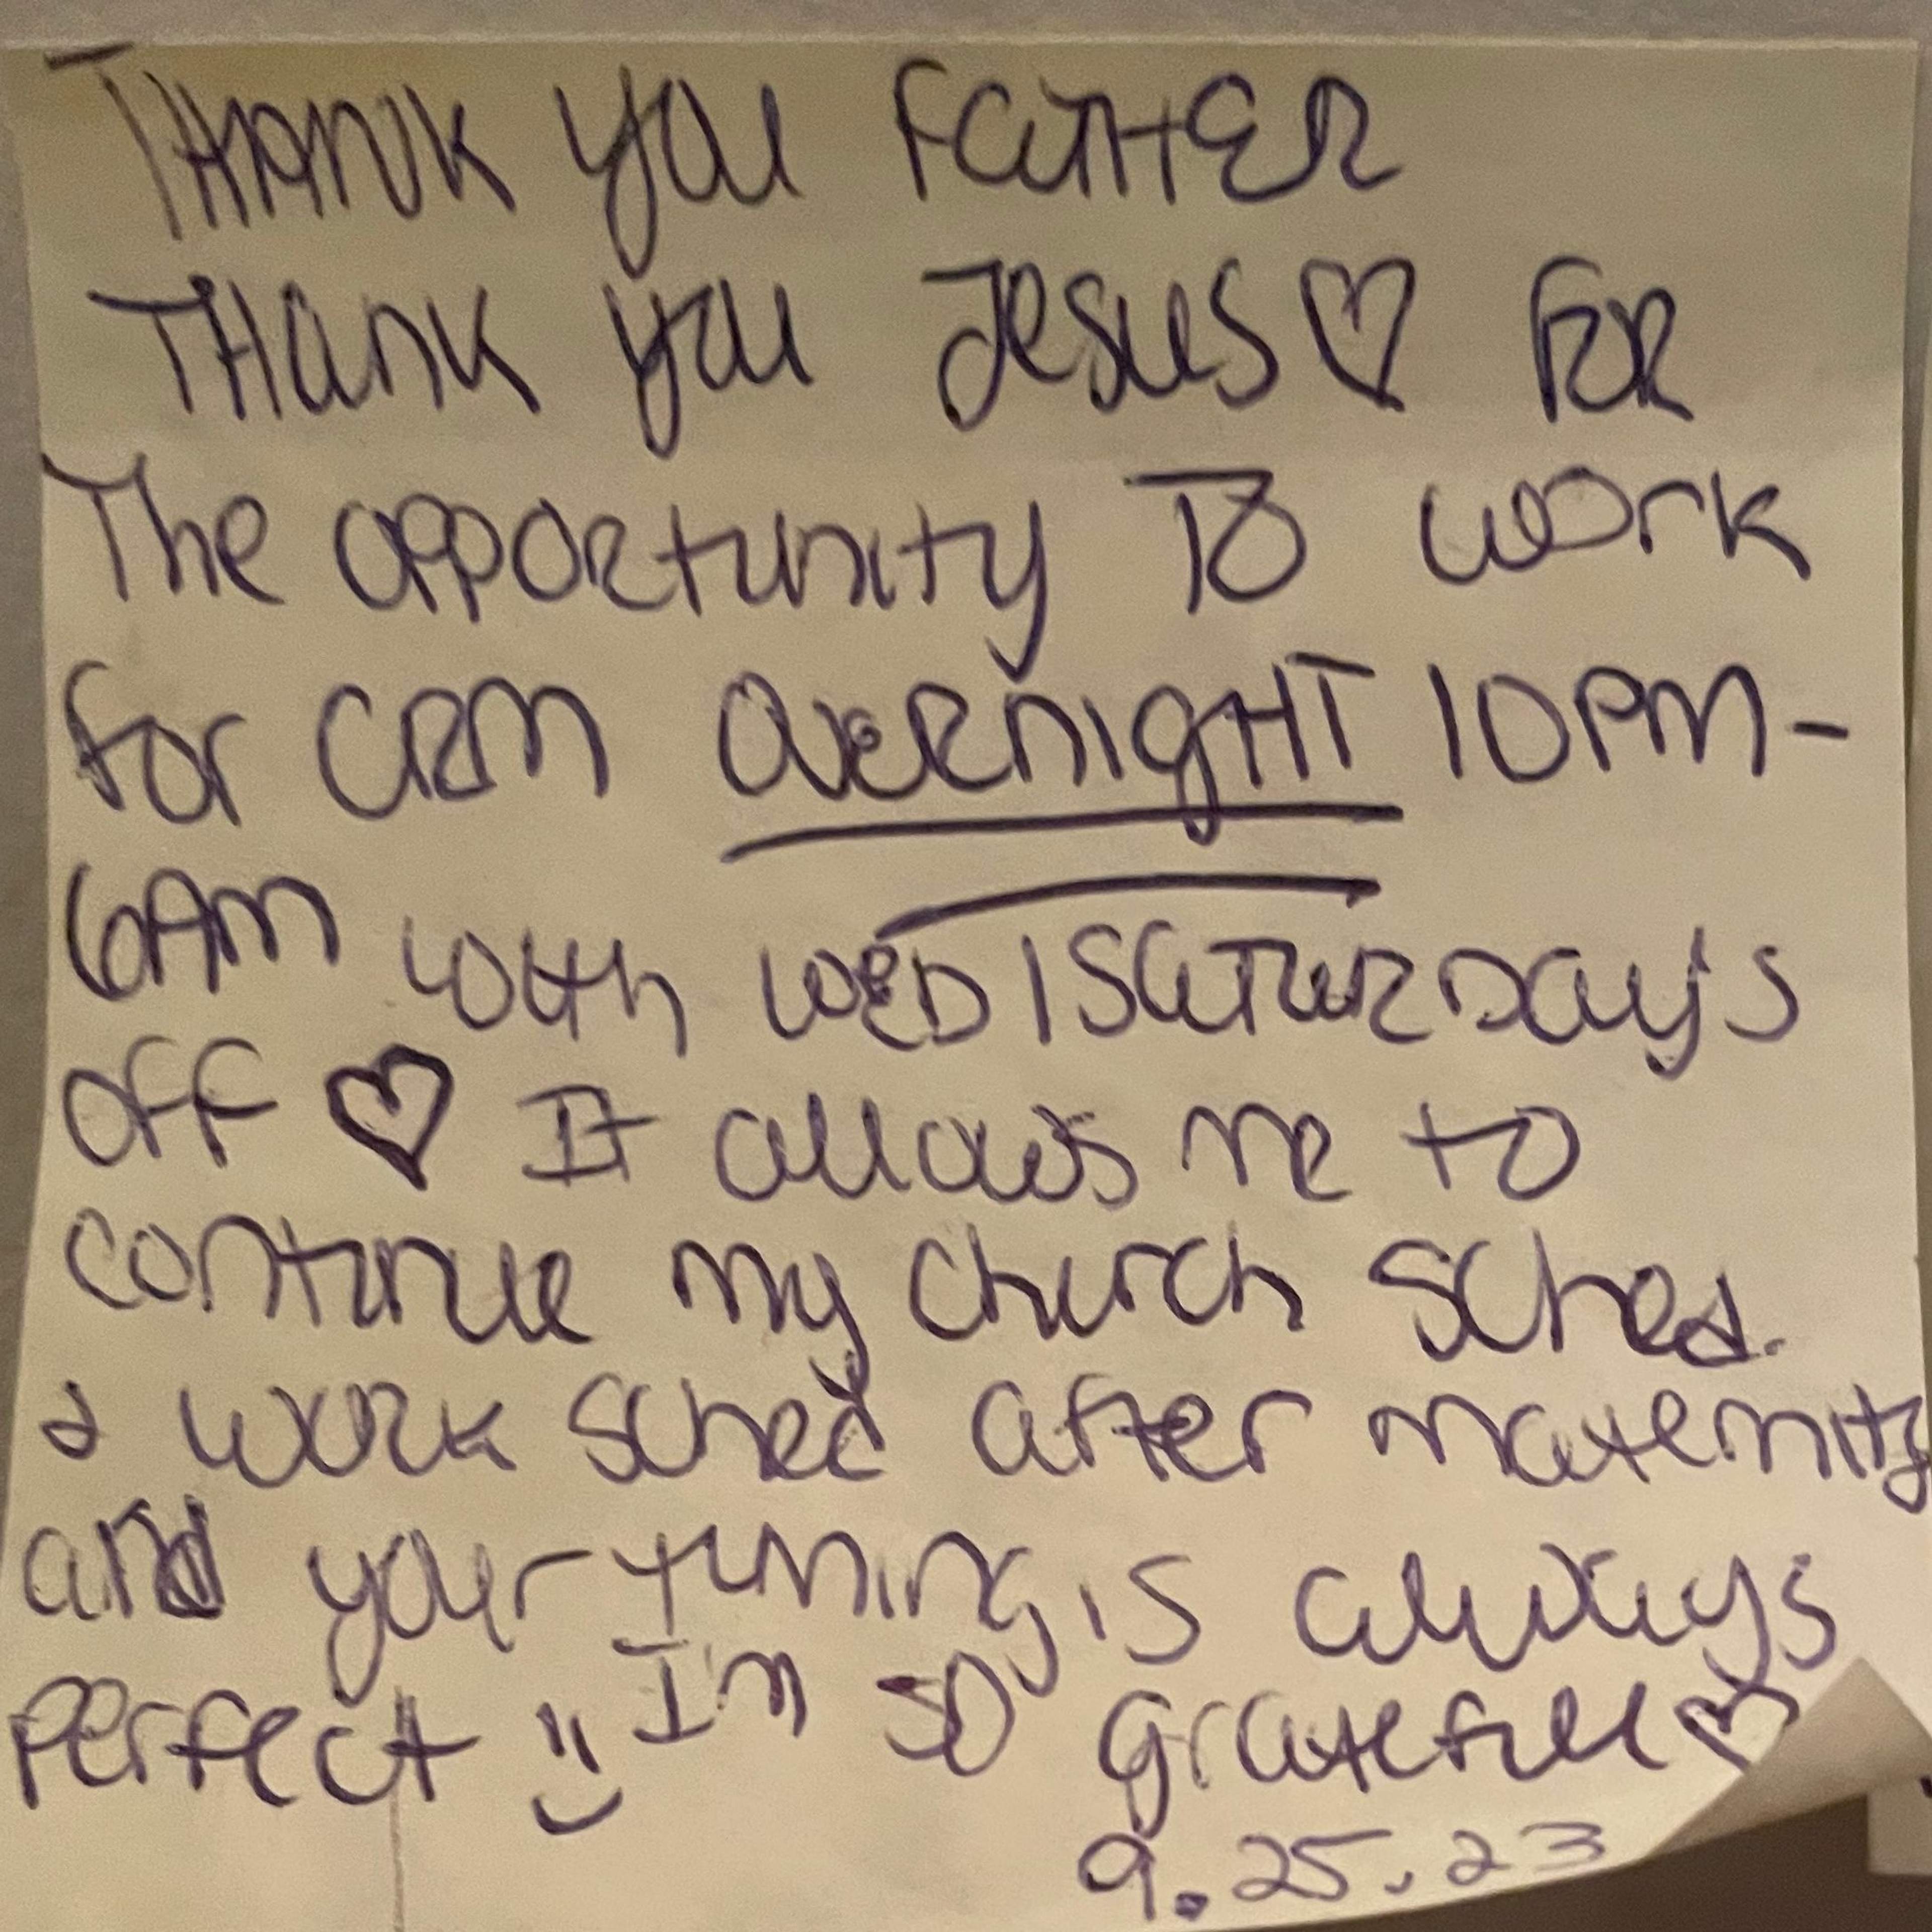 THANK you FATHER
THANK you Jesus♡ FOR
The opportunity TO work
for CRM OVERNIGHT 10PM-
6AM with WED/SATURDAY'S
OFF ♡ It allows me to
continue my church sched.
& work sched after maternity
and your timing is always
perfect :) I'm so gratefull♡
9.25.23